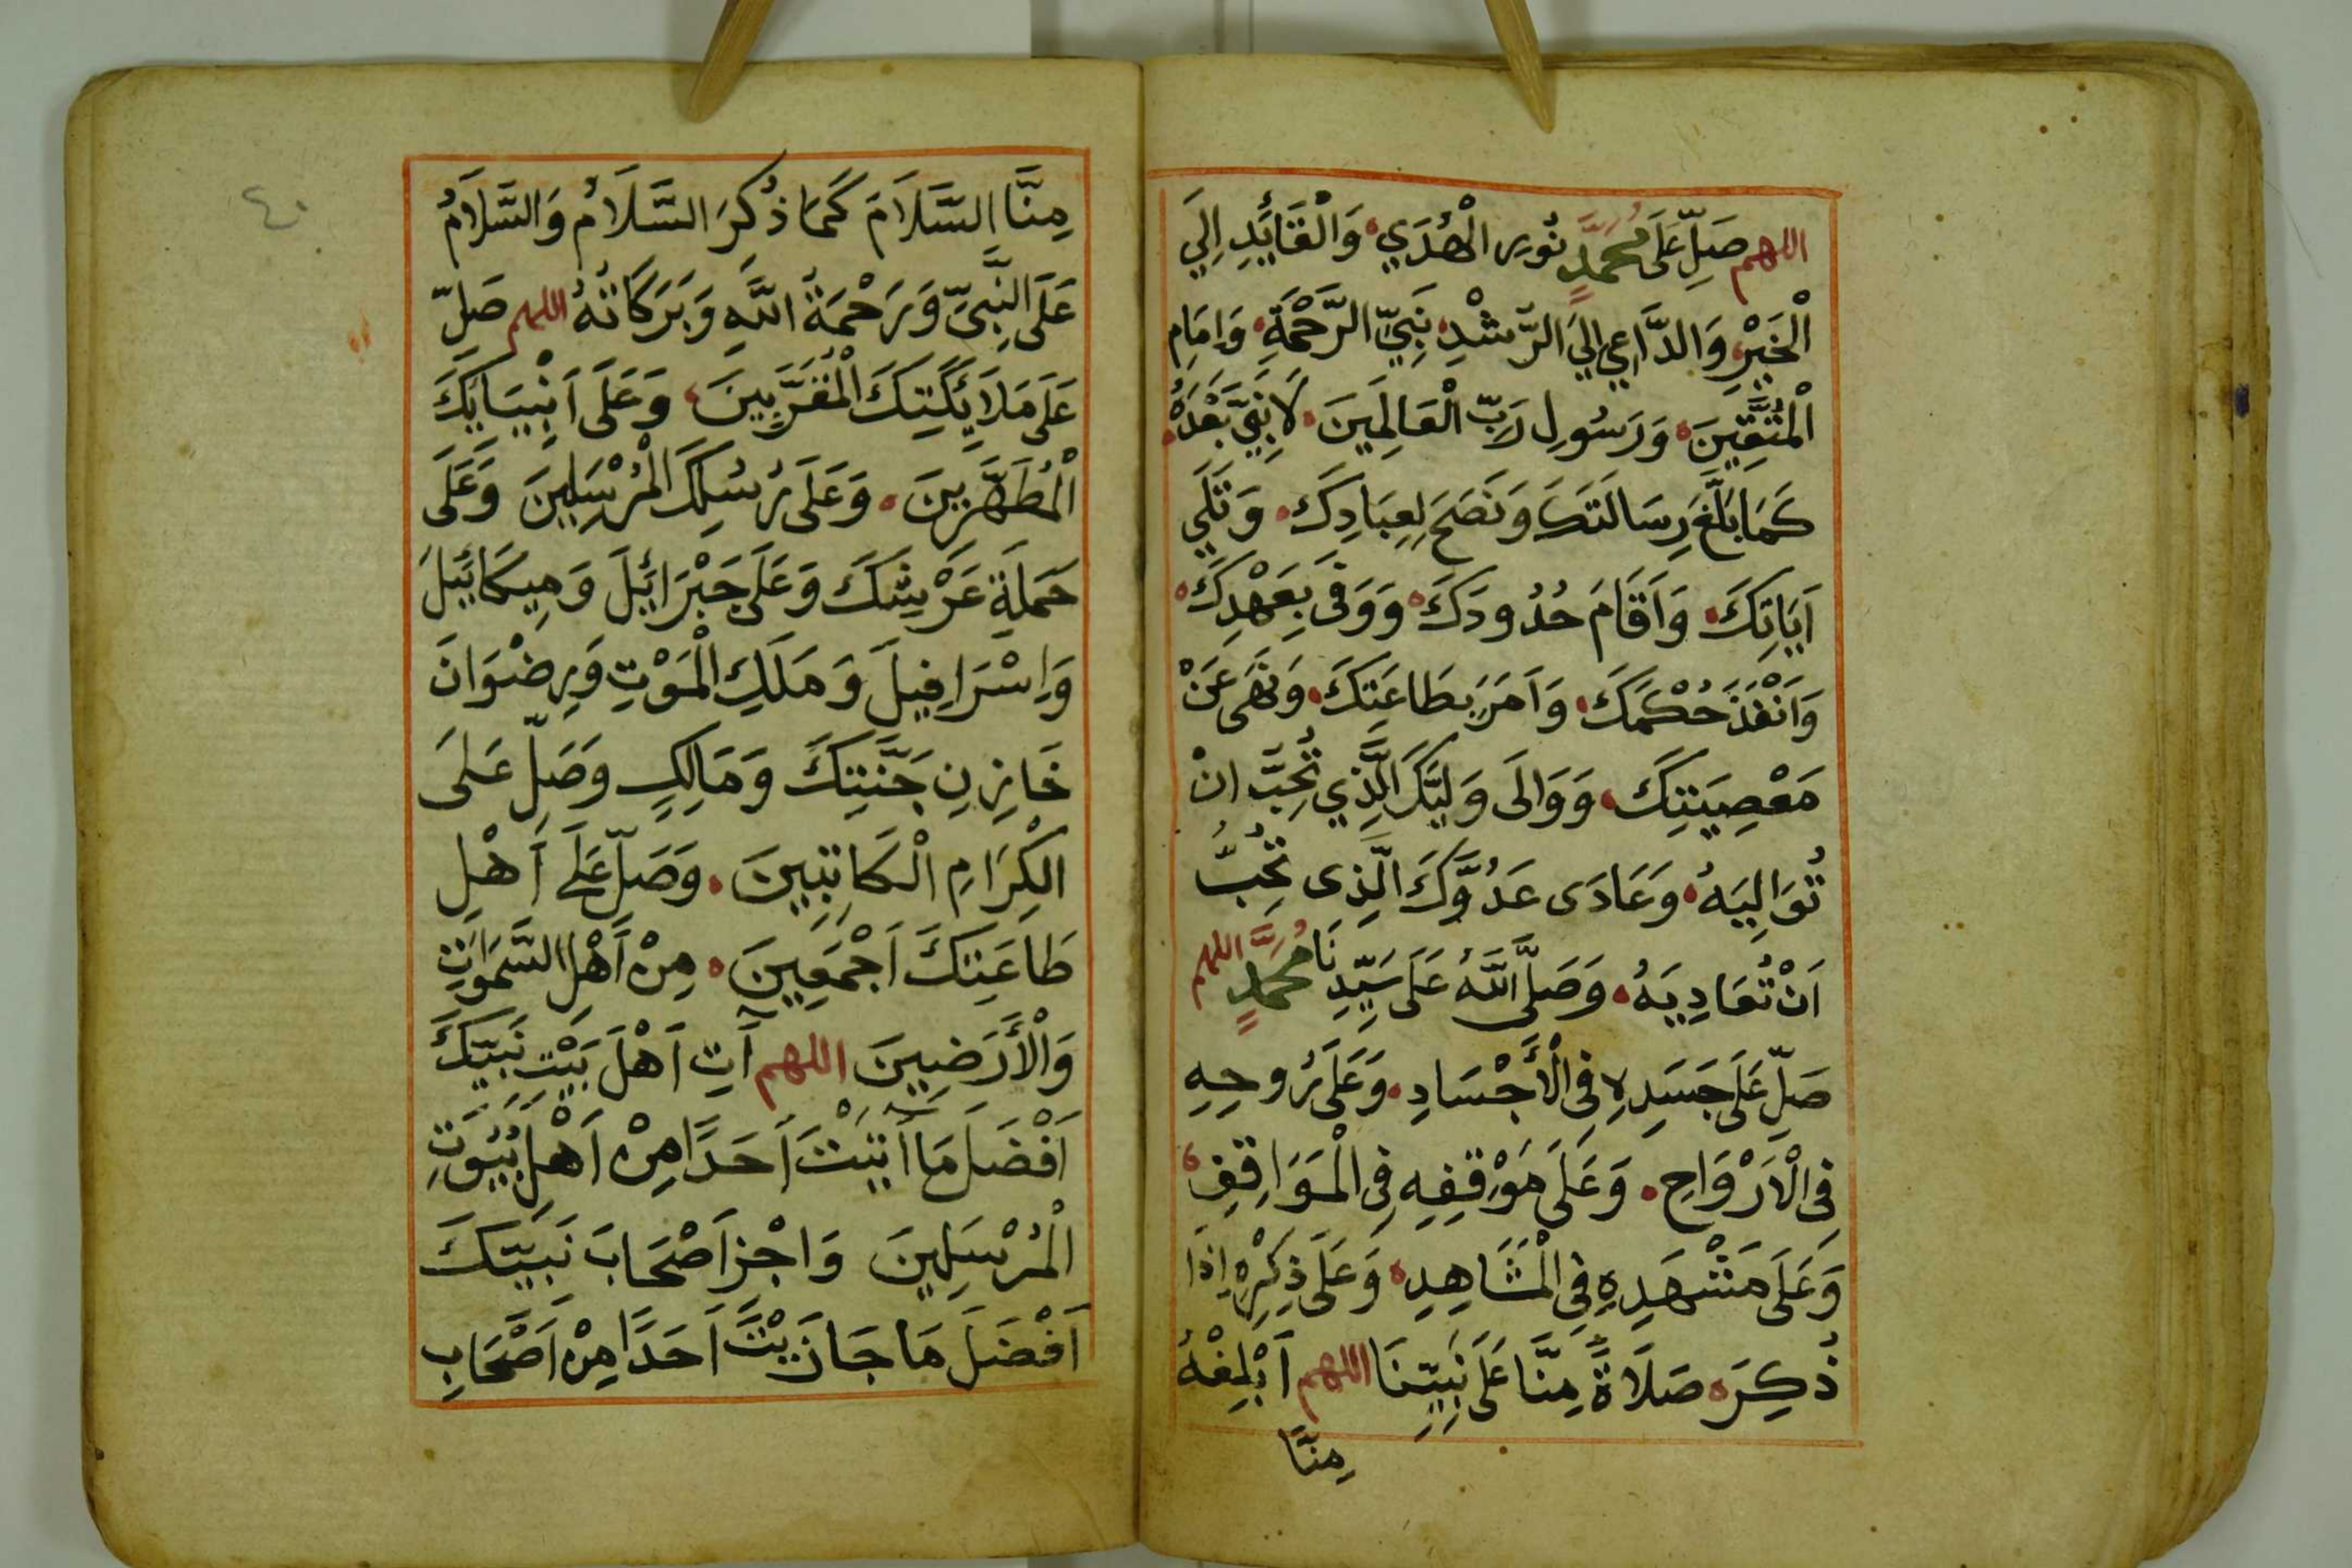 اللهم صَلِّ عَلَى مُحَمَّدٍ نُورِ الْهُدَي وَالْقَائِدِ اِلَي
الْخَيْرِ وَالدَّاعِي اِلَيَ الرُّشْدِ نَبِيِّ الرَّحْمَةِ وَاِمَامِ
الْمُتَّقِينَ وَرَسُولِ رَبِّ الْعَالَمِينَ لَا نَبِيَّ بَعْدَهُ
كَمَا بَلَّغَ رِسَالَتَكَ وَنَصَحَ لِعِبَادِكَ وَتَلَي
اَيَاتِكَ وَاَقَامَ حُدُودَكَ وَوَفَى بِعَهْدِكَ
وَاَنْفَذَ حُكْمَكَ وَاَمَرَ بِطَاعَتِكَ وَنَهَى عَنْ
مَعْصِيَتِكَ وَوَالَى وَلِيَّكَ الَّذِي تُحِبُّ انْ
تُوَالِيَهُ وَعَادَى عَدُوَّكَ الَّذِى تُحِبُّ
اَنْ تُعَادِيَهُ وَصَلَّى اللَّهُ عَلَى سَيِّدِنَا مُحَمَّدٍ اللهم
صَلِّ عَلَى جَسَدِهِ فِى الْأَجْسَادِ وَعَلَى رُوحِهِ
فِى الْاَرْوَاحِ وَعَلَى مَوْقِفِهِ فِى الْمَوَاقِفِ
وَعَلَى مَشْهَدِهِ فِى الْمَشَاهِدِ وَعَلَى ذِكْرِهِ اِذَا
ذُكِرَ صَلَاةً مِنَّا عَلَى نَبِيِّنَا اللهم اَبْلِغْهُ
مِنَّا
مِنَّا السَّلَامَ كَمَا ذُكِرَ السَّلَامُ وَالسَّلَامُ
عَلَى النَّبِيِّ وَرَحْمَةُ اللَّهِ وَبَرَكَاتُهُ اللهم صَلِّ
عَلَى مَلَائِكَتِكَ الْمُقَرَّبِينَ وَعَلَى اَنْبِيَايِكَ
الْمُطَهَّرِينَ وَعَلَى رُسُلِكَ الْمُرْسَلِينَ وَعَلَى
حَمَلَةِ عَرْشِكَ وَعَلَى جَبْرَائِيلَ وَمِيكَائِيلَ
وَاِسْرَافِيلَ وَمَلَكِ الْمَوْتِ وَرِضْوَانَ
خَازِنِ جَنَّتِكَ وَمَالِكٍ وَصَلِّ عَلَى
الْكِرَامِ الْكَاتِبِينَ وَصَلِّ عَلَى اَهْلِ
طَاعَتِكَ اَجْمَعِينَ مِنْ اَهْلِ السَّمَوَاتِ
وَالْأَرَضِينَ اللهم آتِ اَهْلَ بَيْتِ نَبِيِّكَ
اَفْضَلَ مَا أَتَيْتَ اَحَدًا مِنْ اَهْلِ بُيُوتِ
الْمُرْسَلِينَ وَاجْزِ اَصْحَابَ نَبِيِّكَ
اَفْضَلَ مَا جَازَيْتَ اَحَدًا مِنْ اَصْحَابِ
٤٠